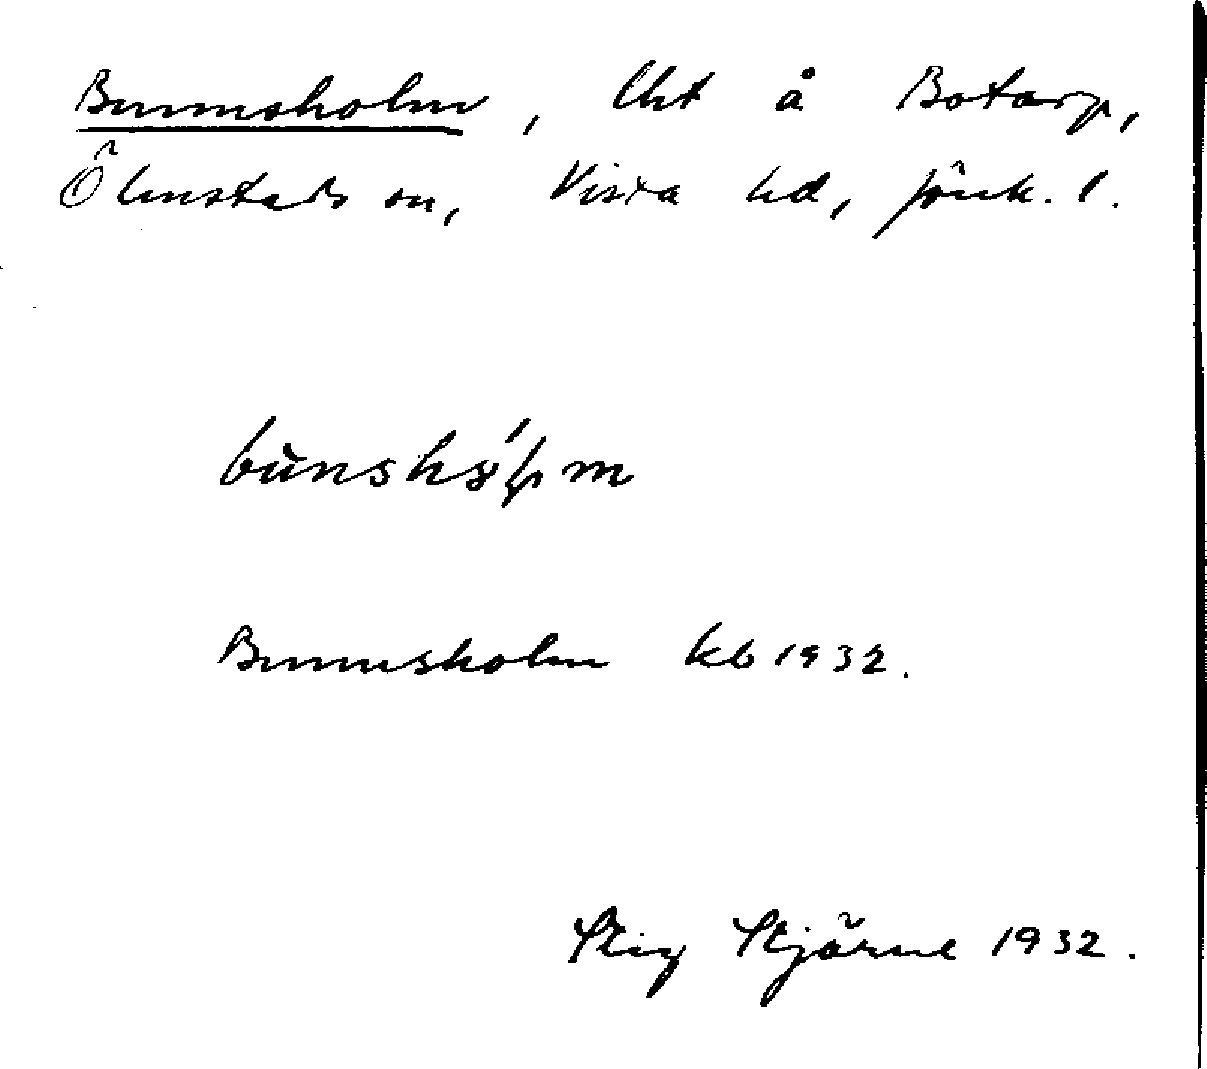 Bunnsholm, lht å Botarp,
Ölmstads sn, Vista hd, Jönk. l.
Bunnsholm kb 1932.
Stig Stjärne 1932.